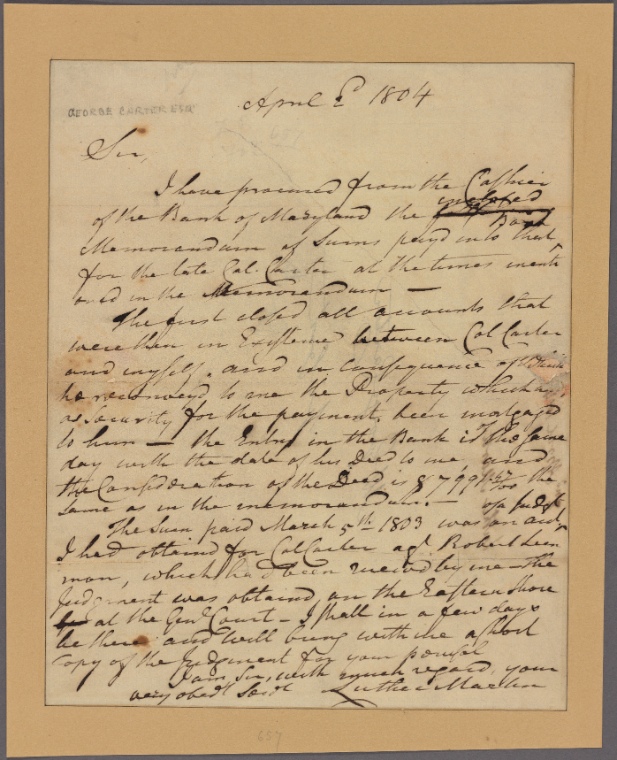 April 2d 1804
GEORGE CARTER ESQ
Sir,
I have procured from the Cashier
of the Bank of Maryland the inclosed
Memorandum of Sums payd into that Bank
for the late Col. Carter at the times menti
oned in the Memorandum —
The first closed all accounts that
were then in Existence between Col Carter
and myself, and in consequence of which
he reconveyd to me the Property which
as Security for the payment, been mortgaged
to him — the Entry in the Bank is the same
day with the date of his Deed to me and
the Consideration of the Deed is the
same as in the memorandum. —
The Sum paid March 5th 1803 was on acct of a Judgt
I had obtained for Col Carter agt Robert
man, which had been received by me — the
Judgment was obtained, on the Eastern Shore
at the Genl Court — I shall in a few days
be there and will bring with me a short
Copy of the Judgment for your perusal
I am, Sir, with much regard, your
very obedt Servt Luther Martin
657